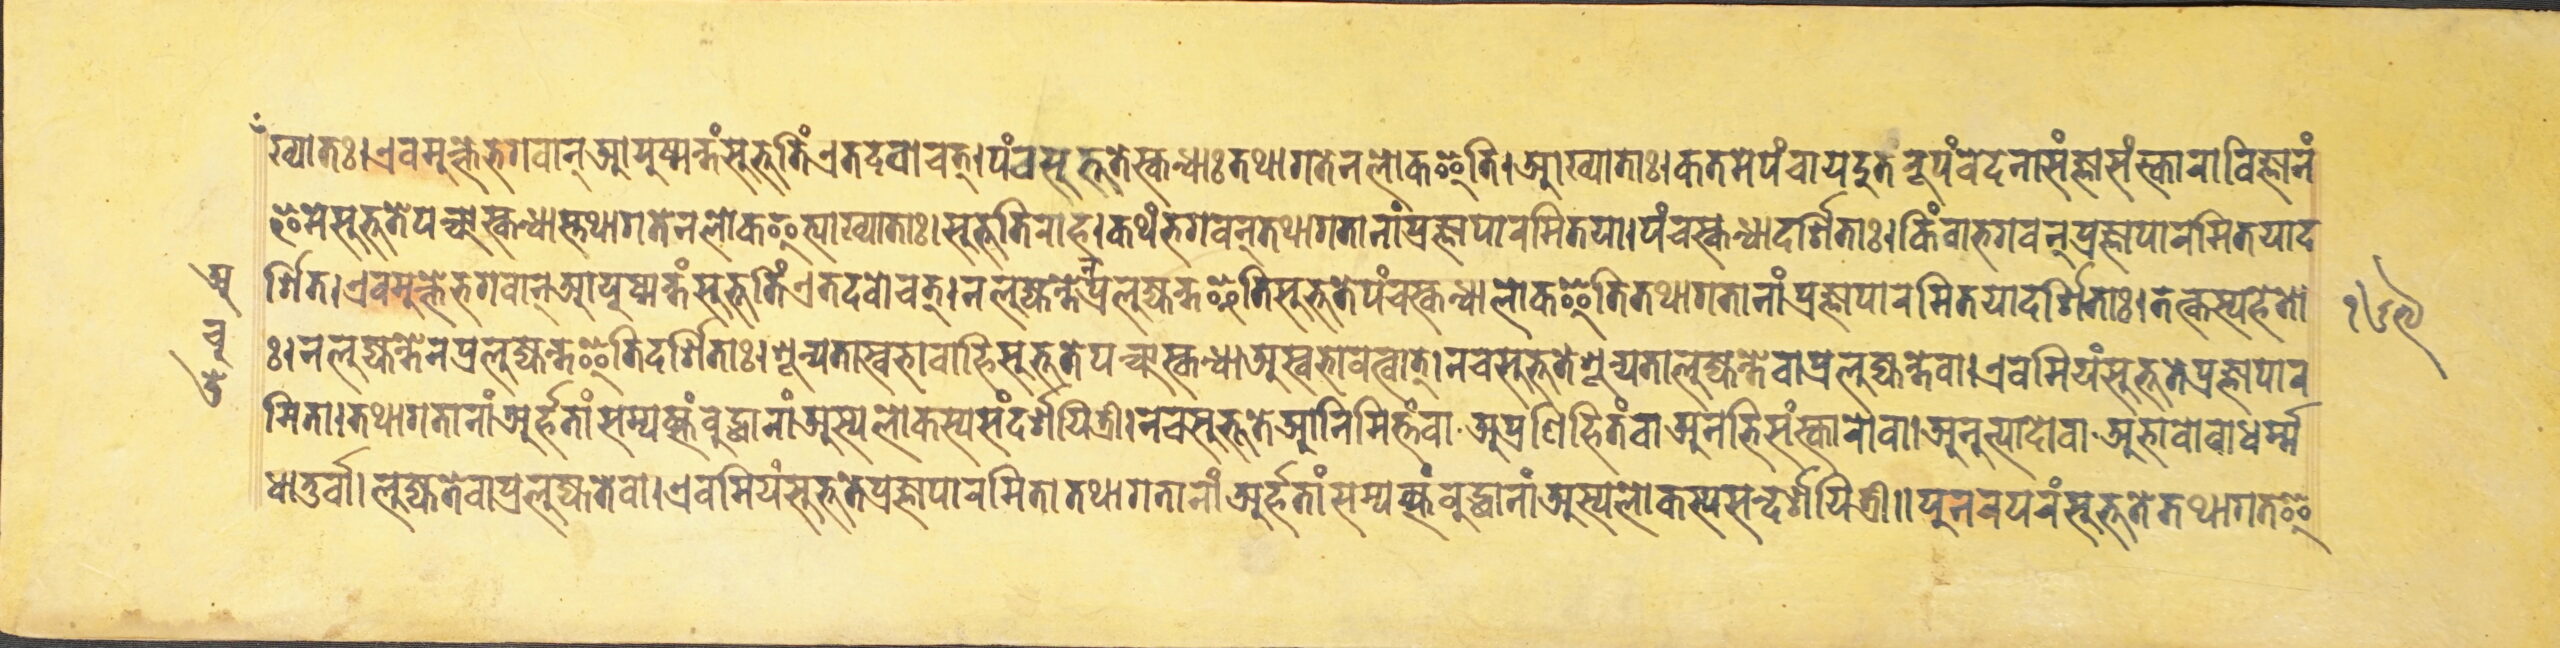 ख्यातः। एवमुक्ते भगवान् आयुष्मन्तं सुभूतिं एतदवोचत्। पंच सुभूते स्कन्धाः तथागतेन लोक इति। आख्याताः। कतमे पंच। यदुत रूपं वेदना संज्ञा संस्कारा विज्ञानं
इमे सुभूते पञ्च स्कन्धास्तथागतेन लोक इत्याख्याताः। सुभूतिराह। कथं भगवन् तथागतानां प्रज्ञापारमितया। पंचस्कन्धा दर्शिताः। किं वा भगवन् प्रज्ञापारमितया द
र्शित। एवमुक्ते भगवान् आयुष्मन्तं सुभूतिं एतदवोचत्। न लुज्यन्ते न प्रलुज्यन्त इति सुभूते पंचस्कन्धा लोक इति तथागतानां प्रज्ञापारमितया दर्शिताः। तत्कस्य हेतो
ः। न लुज्यन्ते न प्रलुज्यन्त इति दर्शिताः। शून्यतास्वभावा हि सुभूते पञ्चस्कन्धा अस्वभावत्वात्। न च सुभूते शून्यता लुज्यन्ते वा प्रलुज्यन्ते वा। एवमियं सुभूते प्रज्ञापार
मिता। तथागतानां अर्हतां सम्यक्संबुद्धानां अस्य लोकस्य संदर्शयित्री। न च सुभूते आनिमित्तं वा अप्रणिहितं वा अनभिसंस्कारो वा। अनुत्पादो वा अभावो वा धर्म्म
धातुर्वा। लुज्यते वा प्रलुज्यते वा। एवमियं सुभूते प्रज्ञापारमिता तथागतानां अर्हतां सम्यक्संबुद्धानां अस्य लोकस्य सन्दर्शयित्री॥ पुनरपरं सुभूते तथागत इ